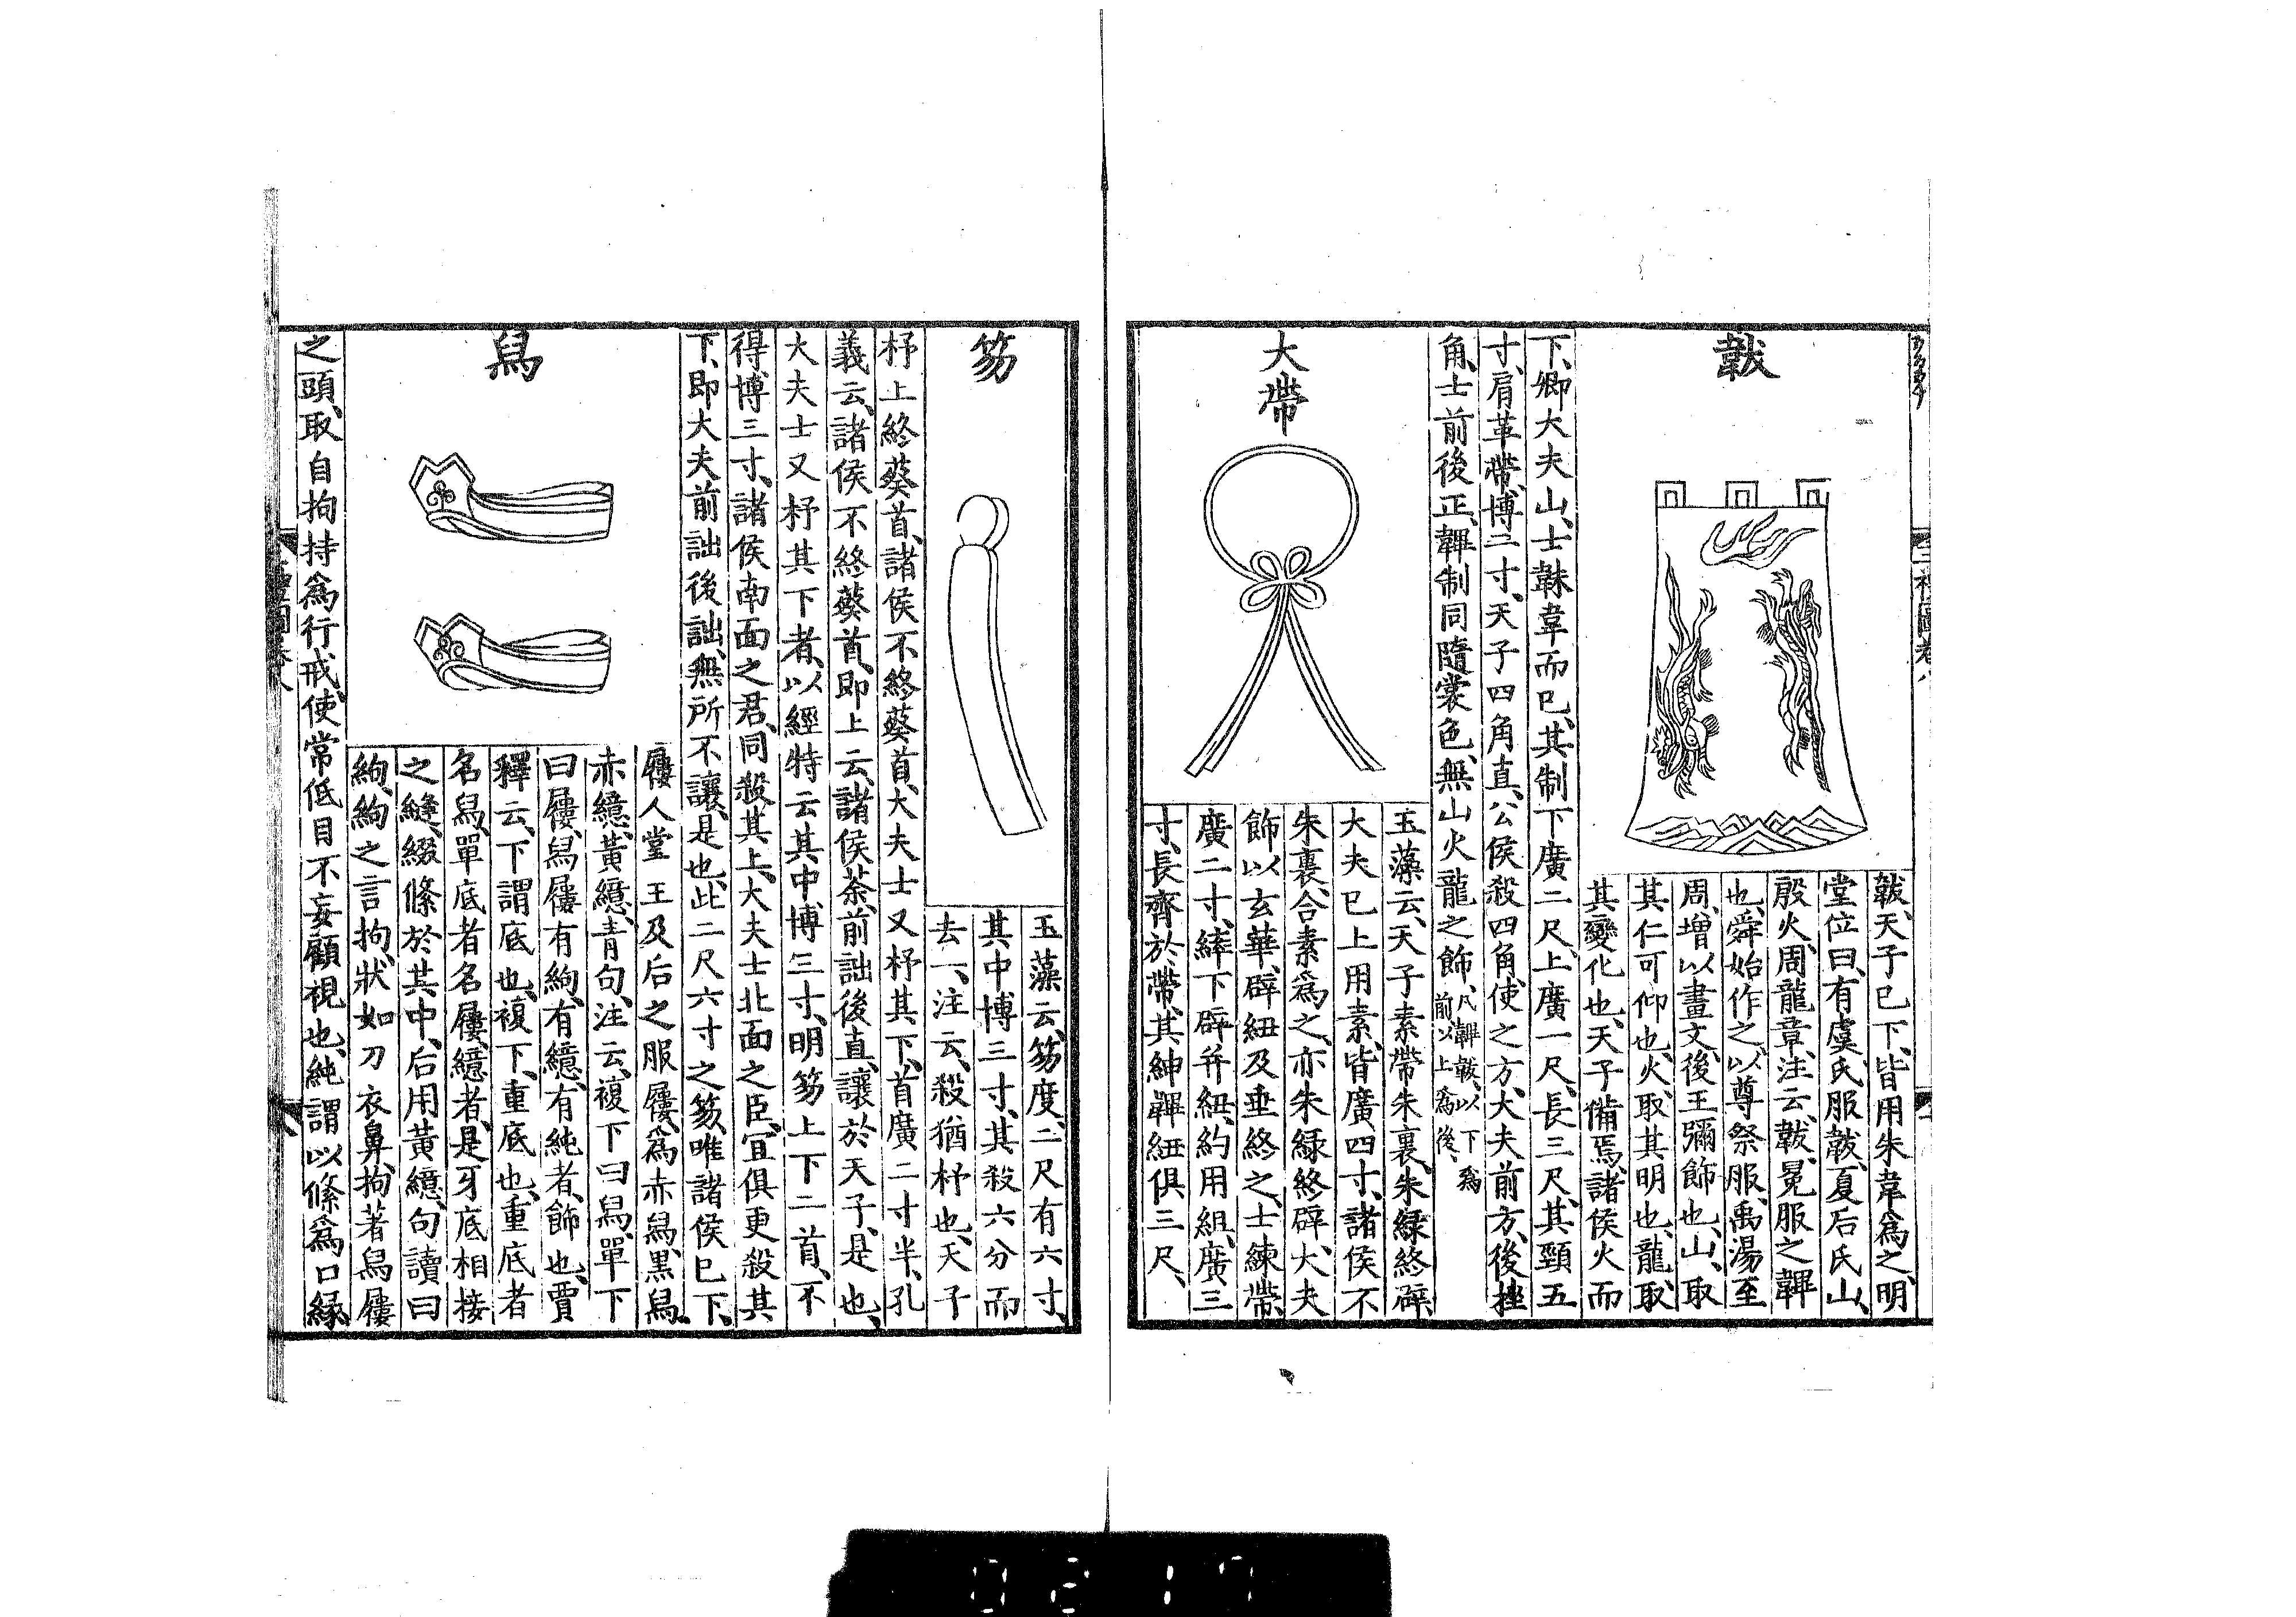 韍
韍、天子已下、皆用朱韋爲之、明
堂位曰、有虞氏服韍、夏后氏山、
殷火、周龍章、注云、韍、冕服之韠
也、舜始作之、以尊祭服、禹湯至
周、增以畫文、後王彌飾也、山、取
其仁可仰也、火、取其明也、龍、取
其變化也、天子備焉、諸侯火而
下、卿大夫山、士韎韋而已、其制下廣二尺、上廣一尺、長三尺、其頸五
寸、肩革帶、博二寸、天子四角直、公侯殺四角、使之方、大夫前方、後挫
角、士前後正、韠制同隨裳色、無山火龍之飾、凡韠韍、以下爲
前、以上爲後、
大帶
玉藻云、天子素帶朱裏、朱緑終辟、
大夫已上用素、皆廣四寸、諸侯不
朱裏、合素爲之、亦朱緑終辟、大夫
飾以玄華、辟紐及垂終之、士練帶、
廣二寸、繂下辟并紐、約用組、廣三
寸、長齊於帶、其紳韠紐俱三尺、
笏
玉藻云、笏度、二尺有六寸、
其中博三寸、其殺六分而
去一、注云、殺猶杼也、天子
杼上終葵首、諸侯不終葵首、大夫士又杼其下、首廣二寸半、孔
義云、諸侯不終葵首、即上云、諸侯荼、前詘後直、讓於天子、是也、
大夫士又杼其下者、以經特云其中、博三寸、明笏上下二首、不
得博三寸、諸侯南面之君、同殺其上、大夫士北面之臣、宜俱更殺其
下、即大夫前詘後詘、無所不讓、是也、此二尺六寸之笏、唯諸侯已下、
舄
屨人掌王及后之服屨、爲赤舄、黒舄、
赤繶、黃繶、青句、注云、複下曰舄、單下
曰屨、舄屨有絇、有繶、有純者、飾也、賈
釋云、下謂底也、複下、重底也、重底者
名舄、單底者名屨、繶者、是牙底相接
之縫、綴絛於其中、后用黃繶、句讀曰
絇、絇之言拘、狀如刀衣鼻、拘著舄屨
之頭、取自拘持爲行戒、使常低目不妄顧視也、純謂以絛爲口緣、